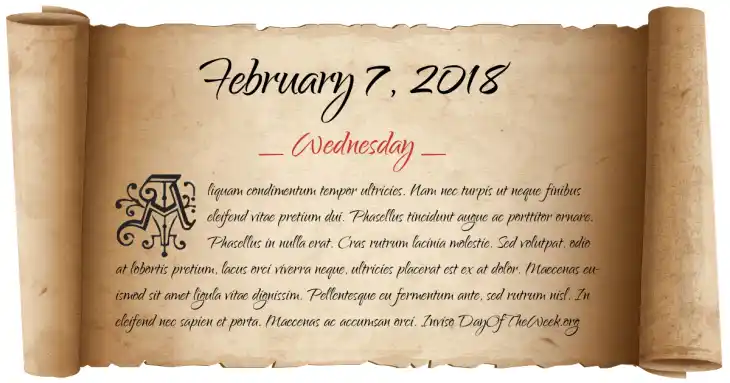 February 7, 2018
_ Wednesday _
Aliquam condimentum tempor ultricies. Nam nec turpis ut neque finibus
eleifend vitae pretium dui. Phasellus tincidunt augue ac porttitor ornare.
Phasellus in nulla erat. Cras rutrum lacinia molestie. Sed volutpat, odio
at lobortis pretium, lacus orci viverra neque, ultricies placerat est ex at dolor. Maecenas eu-
ismod sit amet ligula vitae dignissim. Pellentesque eu fermentum ante, sed rutrum nisl. In
eleifend nec sapien et porta. Maecenas ac accumsan orci. Inviso DayOfTheWeek.org